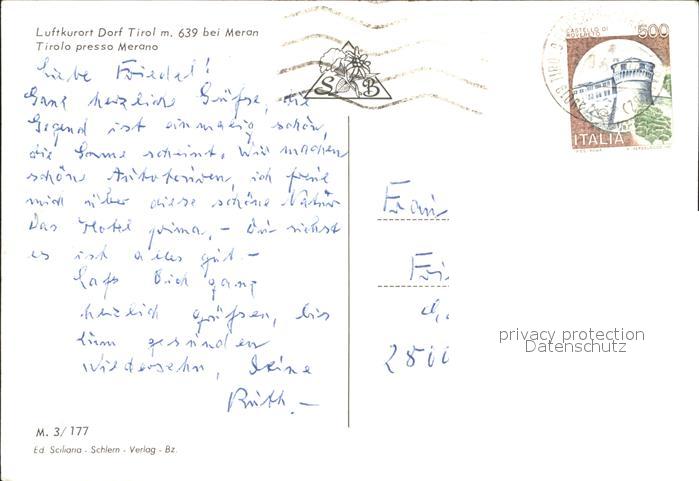 Luftkurort Dorf Tirol m. 639 bei Meran
Tirolo presso Merano
Liebe Friedel!
Ganz herzliche Grüße, die
Gegend ist einmalig schön,
die Sonne scheint. Wir machen
schöne Autoferien, ich freue
mich über diese schöne Natur
Das Hotel prima, – Du siehst
es ist alles gut. –
Laß Dich ganz
herzlich grüßen, bis
zum gesunden
Wiedersehn, Deine
Ruth. –
S B
CASTELLO DI
ROVERETO
500
ITALIA
Frau
2800
privacy protection
Datenschutz
M. 3/177
Ed. Sciliana - Schlern - Verlag - Bz.